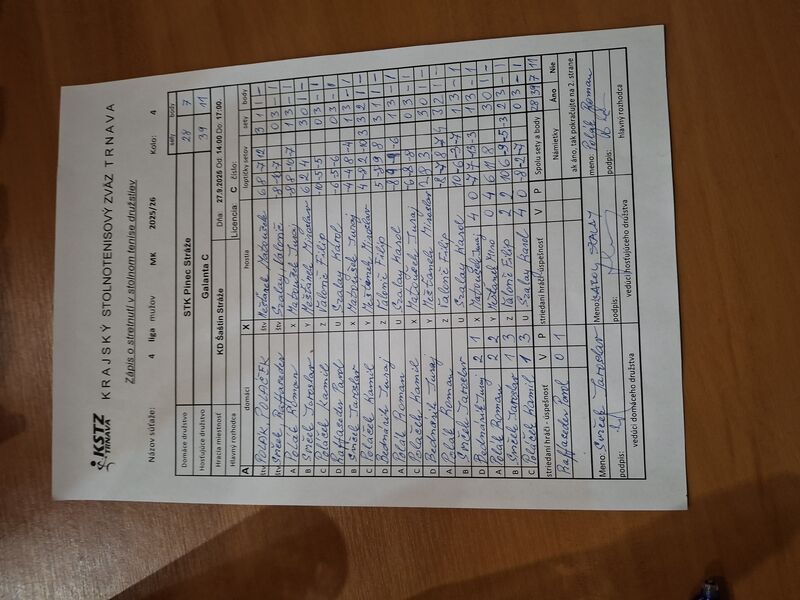 KSTZ
TRNAVA
KRAJSKÝ STOLNOTENISOVÝ ZVÄZ TRNAVA
Zápis o stretnutí v stolnom tenise družstiev
Názov súťaže: 4 liga mužov MK 2025/26 Kolo: 4
sety body
Domáce družstvo STK Pinec Stráže 28 7
Hosťujúce družstvo Galanta C 39 11
Hracia miestnosť KD Šaštín Stráže Dňa: 27.9.2025 Od 14:00 Do 17:00.
Hlavný rozhodca Licencia: C číslo:
A domáci X hostia loptičky setov sety body
štv POLÁK, POLÁČEK štv Mešťánek, Matoušek 6 8 -7 12 3 1 1 -
štv Smček, Raffaseder štv Szalay, Valonič -8 -10 -7 0 3 - 1
A Polák Roman X Matoušek Juraj 1 3 - 1
B Smček Jaroslav Y Mešťánek Miroslav 6 2 4 3 0 1 -
C Poláček Kamil Z Valonič Filip -10 -5 -5 0 3 - 1
D Raffaseder Pavol U Szalay Karol -6 -5 -6 0 3 - 1
B Smček Jaroslav X Matoušek Juraj 1 3 - 1
C Poláček Kamil Y Mešťánek Miroslav 3 2 1 -
D Bednárik Juraj Z Valonič Filip 3 1 1 -
A Polák Roman U Szalay Karol 1 3 - 1
C Poláček Kamil X Matoušek Juraj 0 3 - 1
D Bednárik Juraj Y Mešťánek Miroslav 3 0 1 -
A Polák Roman Z Valonič Filip 3 2 1 -
B Smček Jaroslav U Szalay Karol 1 3 - 1
D Bednárik Juraj 2 1 X Matoušek Juraj 4 0 1 3 - 1
A Polák Roman 2 2 Y Mešťánek Miro 0 4 6 11 8 3 0 1 -
B Smček Jaroslav 1 3 Z Valonič Filip 2 2 2 3 - 1
C Poláček Kamil 1 3 U Szalay Karol 4 0 -8 -2 -7 0 3 - 1
striedaní hráči - úspešnosť V P striedaní hráči-úspešnosť V P Spolu sety a body 28 39 7 11
Raffaseder Pavol 0 1 Námietky Áno Nie
ak áno, tak pokračujte na 2. strane
Meno: Smček Jaroslav Meno: meno: Polák Roman
podpis: podpis: podpis:
vedúci domáceho družstva vedúci hosťujúceho družstva hlavný rozhodca